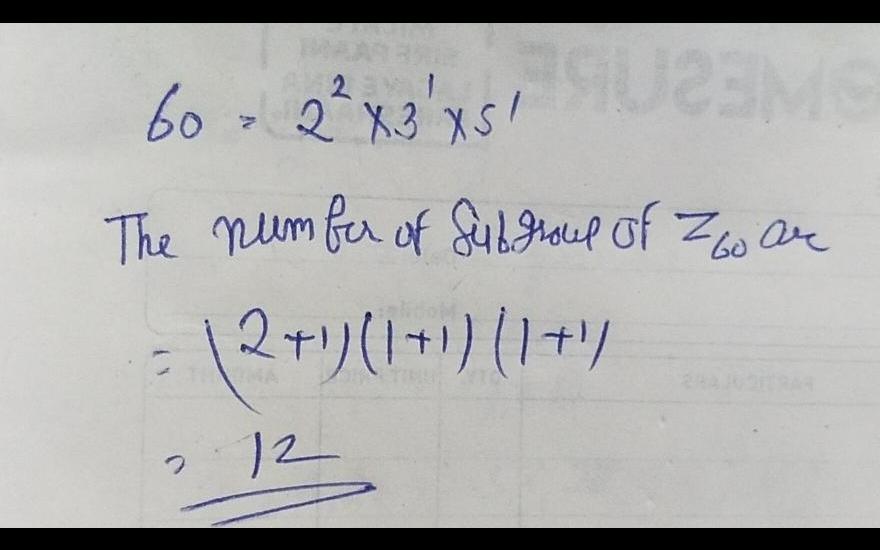 60 = 2² × 3¹ × 5¹
The number of Subgroup of Z₆₀ are
= (2+1)(1+1)(1+1)
= 12